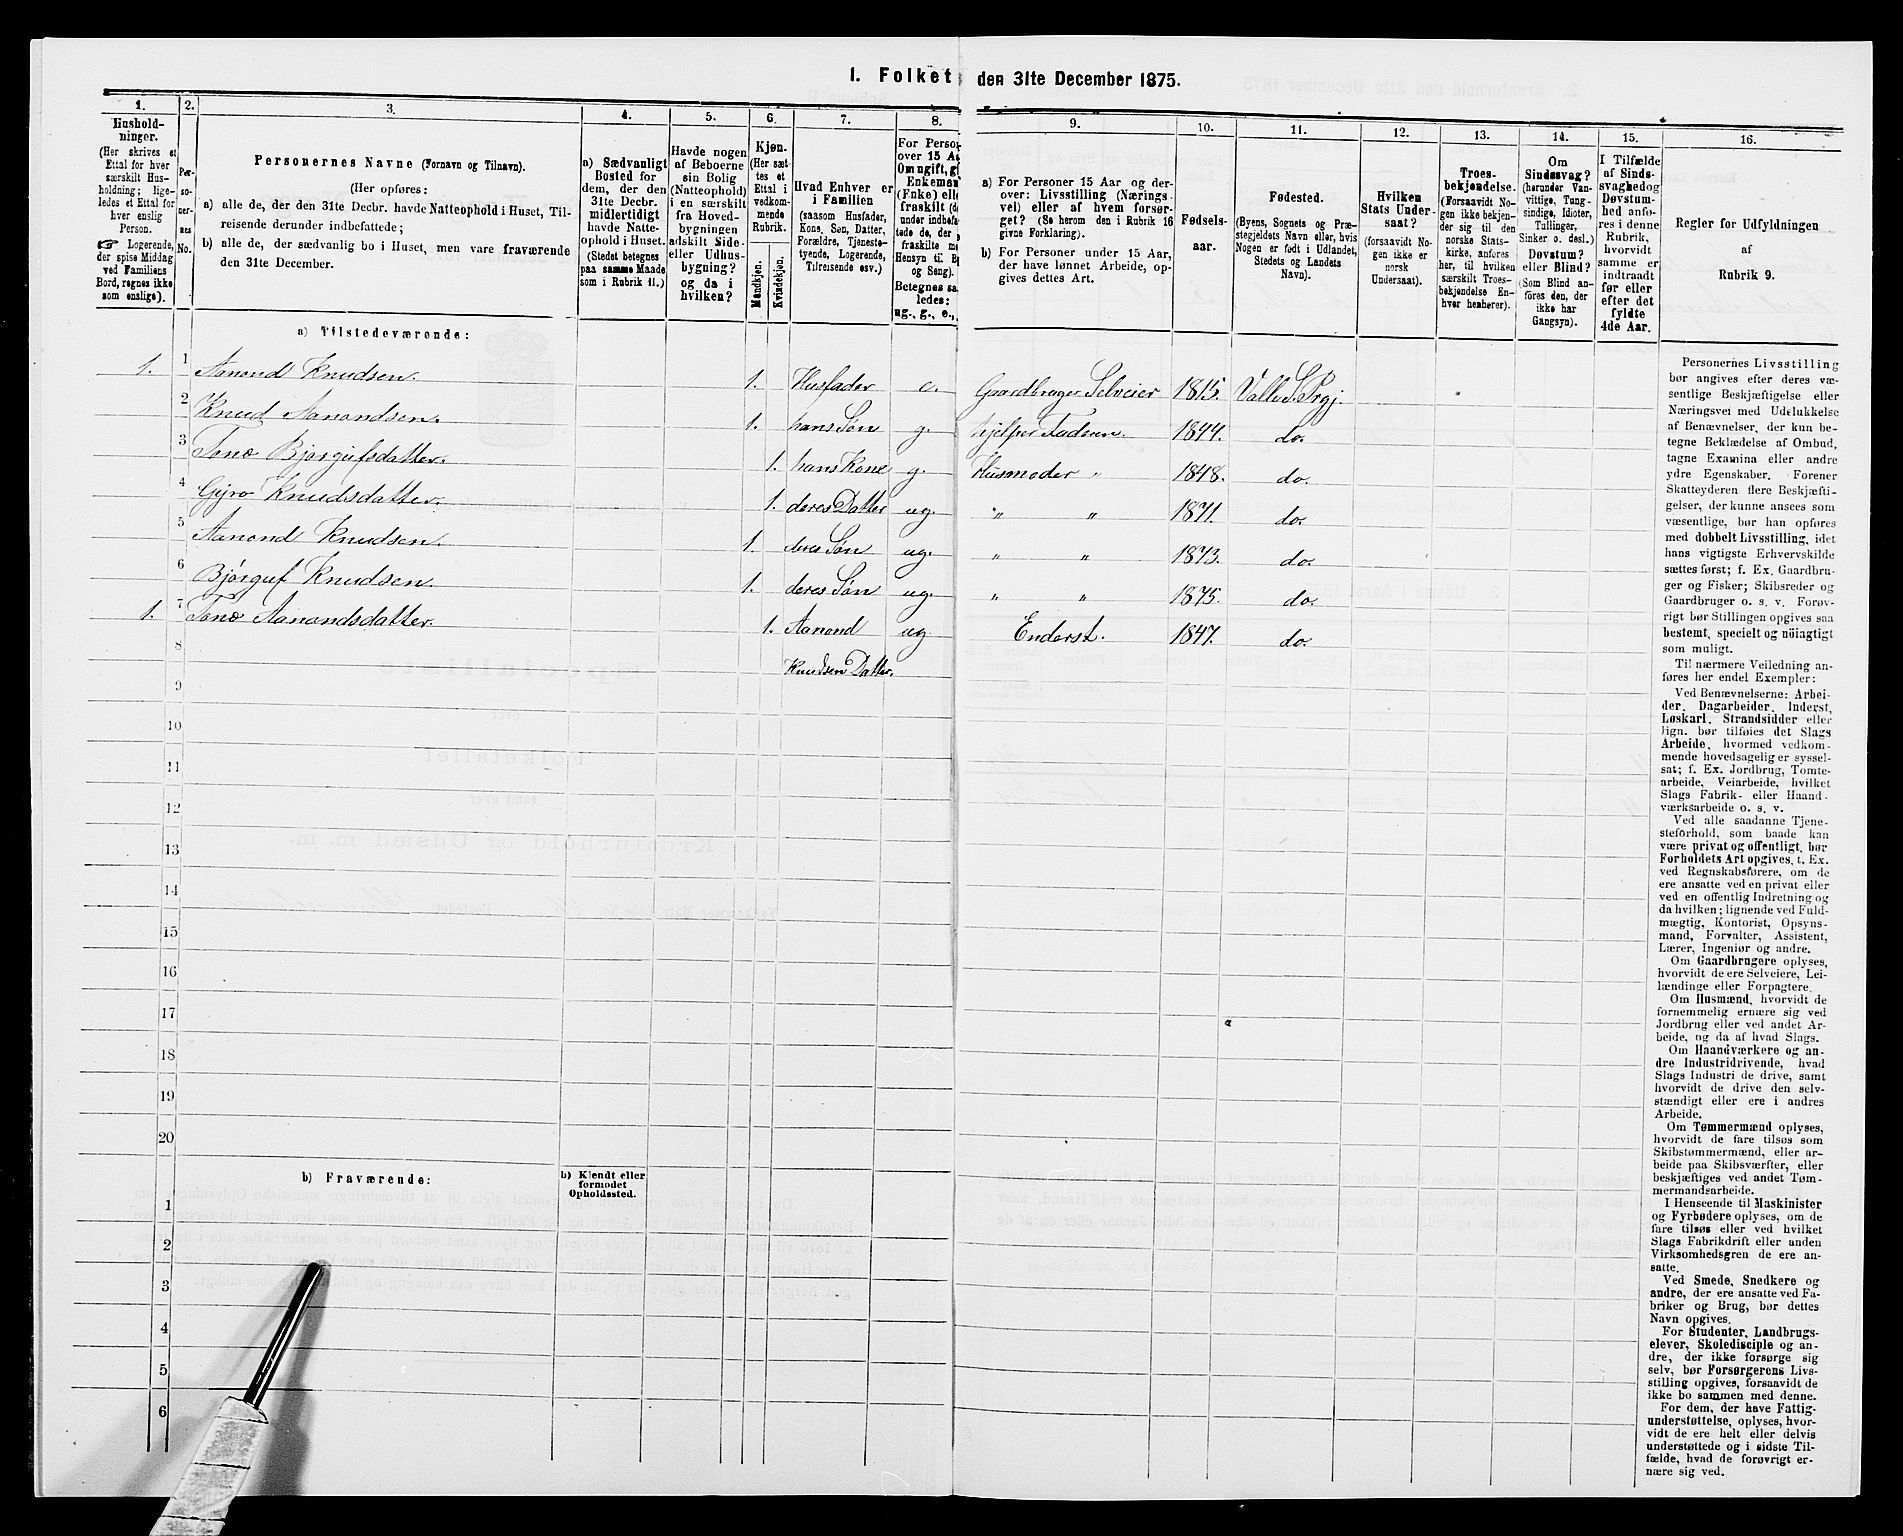 1. Folket den 31te December 1875.
1. 2. 3. 4. 5. 6. 7. 8. 9. 10. 11. 12. 13. 14. 15. 16.
Husholdninger.
(Her skrives et
Ettal for hver
særskilt Hus-
holdning; lige-
ledes et Ettal for
hver enslig
Person.
☞ Logerende,
der spise Middag
ved Familiens
Bord, regnes ikke
som enslige).
Personernes No.
Personernes Navne (Fornavn og Tilnavn).
(Her opføres:
a) alle de, der den 31te Decbr. havde Natteophold i Huset, Til-
reisende derunder indbefattede;
b) alle de, der sædvanlig bo i Huset, men vare fraværende
den 31te December.
a) Sædvanligt
Bosted for
dem, der den
31te Decbr.
midlertidigt
havde Natte-
ophold i Huset.
(Stedet betegnes
paa samme Maade
som i Rubrik 11.)
Havde nogen
af Beboerne
sin Bolig
(Natteophold)
i en særskilt
fra Hoved-
bygningen
adskilt Side-
eller Udhus-
bygning?
og da i
hvilken?
Kjøn.
(Her sæt-
tes et
Ettal i
vedkom-
mende
Rubrik.
Mandkjøn.
Kvindekjøn.
Hvad Enhver er
i Familien
(saasom Husfader,
Kone, Søn, Datter,
Forældre, Tjeneste-
tyende, Logerende,
Tilreisende osv.)
For Person
over 15 Aa
Om ugift, g
Enkeman
(Enke) elle
fraskilt (d
under indbefa
tede de, der
fraskilte m
Hensyn til B
og Seng).
Betegnes sa
ledes:
ug., g., e.,
a) For Personer 15 Aar og der-
over: Livsstilling (Nærings-
vei) eller af hvem forsør-
get? (Se herom den i Rubrik 16
givne Forklaring).
b) For Personer under 15 Aar,
der have lønnet Arbeide, op-
gives dettes Art.
Fødsels-
aar.
Fødested.
(Byens, Sognets og Præ-
stegjeldets Navn eller, hvis
Nogen er født i Udlandet,
Stedets og Landets
Navn).
Hvilken
Stats Under-
saat?
(forsaavidt No-
gen ikke er
norsk
Undersaat).
Troes-
bekjendelse.
(Forsaavidt No-
gen ikke bekjen-
der sig til den
norske Stats-
kirke, anføres
her, til hvilken
særskilt Troes-
bekjendelse En-
hver henhører).
Om
Sindssvag?
(herunder Van-
vittige, Tung-
sindige, Idioter,
Tullinger,
Sinker o. desl.)
Døvstum?
eller Blind?
(Som Blind an-
føres den, der
ikke har
Gangsyn).
I Tilfælde
af Sinds-
svaghed og
Døvstum-
hed anfø-
res i denne
Rubrik,
hvorvidt
samme er
indtraadt
før eller
efter det
fyldte
4de Aar.
Regler for Udfyldningen
af
Rubrik 9.
a) Tilstedeværende:
1. 1 Aanond Knudsen. 1. Husfader e. Gaardbruger Selveier 1815. Valle S. Prgj.
2 Knud Aanondsen. 1. hans Søn g. hjelper Faderen. 1844. do.
3 Tone Bjørgufsdatter. 1. hans Kone g. Husmoder " 1848. do.
4 Gyro Knudsdatter. 1. deres Datter ug. " " 1871. do.
5 Aanond Knudsen. 1. deres Søn ug. " " 1873. do.
6 Bjørguf Knudsen. 1. deres Søn ug. " " 1875. do.
1. 7 Tone Aanondsdatter. 1. Aanond ug Enderst. 1847. do.
8 Knudsen Datter.
9
10
11
12
13
14
15
16
17
18
19
20
b) Fraværende:
b) Kjendt eller
formodet
Opholdssted.
1
2
3
4
5
6
Personernes Livsstilling
bør angives efter deres væ-
sentlige Beskjæftigelse eller
Næringsvei med Udelukkelse
af Benævnelser, der kun be-
tegne Beklædelse af Ombud,
tagne Examina eller andre
ydre Egenskaber. Forener
Skatteyderen flere Beskjæfti-
gelser, der kunne ansees som
væsentlige, bør han opføres
med dobbelt Livsstilling, idet
hans vigtigste Erhvervskilde
sættes først; f. Ex. Gaardbru-
ger og Fisker; Skibsreder og
Gaardbruger o. s. v. Forøv-
rigt bør Stillingen opgives saa
bestemt, specielt og nöiagtigt
som muligt.
Til nærmere Veiledning an-
føres her endel Exempler:
Ved Benævnelserne: Arbei-
der, Dagarbeider, Inderst,
Løskarl, Strandsidder eller
lign. bør tilføies det Slags
Arbeide, hvormed vedkom-
mende hovedsagelig er syssel-
sat; f. Ex. Jordbrug, Tomte-
arbeide, Veiarbeide, hvilket
Slags Fabrik- eller Haand-
værksarbeide o. s. v.
Ved alle saadanne Tjene-
steforhold, som baade kan
være privat og offentligt, bør
Forholdets Art opgives, t. Ex.
ved Regnskabsførere, om de
ere ansatte ved en privat eller
ved en offentlig Indretning og
da hvilken; lignende ved Fuld-
mægtig, Kontorist, Opsyns-
mand, Forvalter, Assistent,
Lærer, Ingeniør og andre.
Om Gaardbrugere oplyses,
hvorvidt de ere Selveiere, Lei-
lændinge eller Forpagtere.
Om Husmænd, hvorvidt de
fornemmelig ernære sig ved
Jordbrug eller ved andet Ar-
beide, og da af hvad Slags.
Om Haandværkere og an-
dre Industridrivende, hvad
Slags Industri de drive, samt
hvorvidt de drive den selv-
stændigt eller ere i andres
Arbeide.
Om Tømmermænd oplyses,
hvorvidt de fare tilsøs som
Skibstømmermænd, eller ar-
beide paa Skibsværfter, eller
beskjæftiges ved andet Tøm-
mermandsarbeide.
I Henseende til Maskinister
og Fyrbødere oplyses, om de
fare tilsøs eller ved hvilket
Slags Fabrikdrift eller anden
Virksomhedsgren de ere an-
satte.
Ved Smede, Snedkere og
andre, der ere ansatte ved Fa-
briker og Brug, bør dettes
Navn opgives.
For Studenter, Landbrugs-
elever, Skoledisciple og an-
dre, der ikke forsørge sig
selv, bør Forsørgerens Livs-
stilling opgives, forsaavidt de
ikke bo sammen med denne.
For dem, der have Fattig-
understøttelse, oplyses, hvor-
vidt de ere helt eller delvis
understøttede og i sidste Til-
fælde, hvad de forøvrigt er-
nære sig ved.